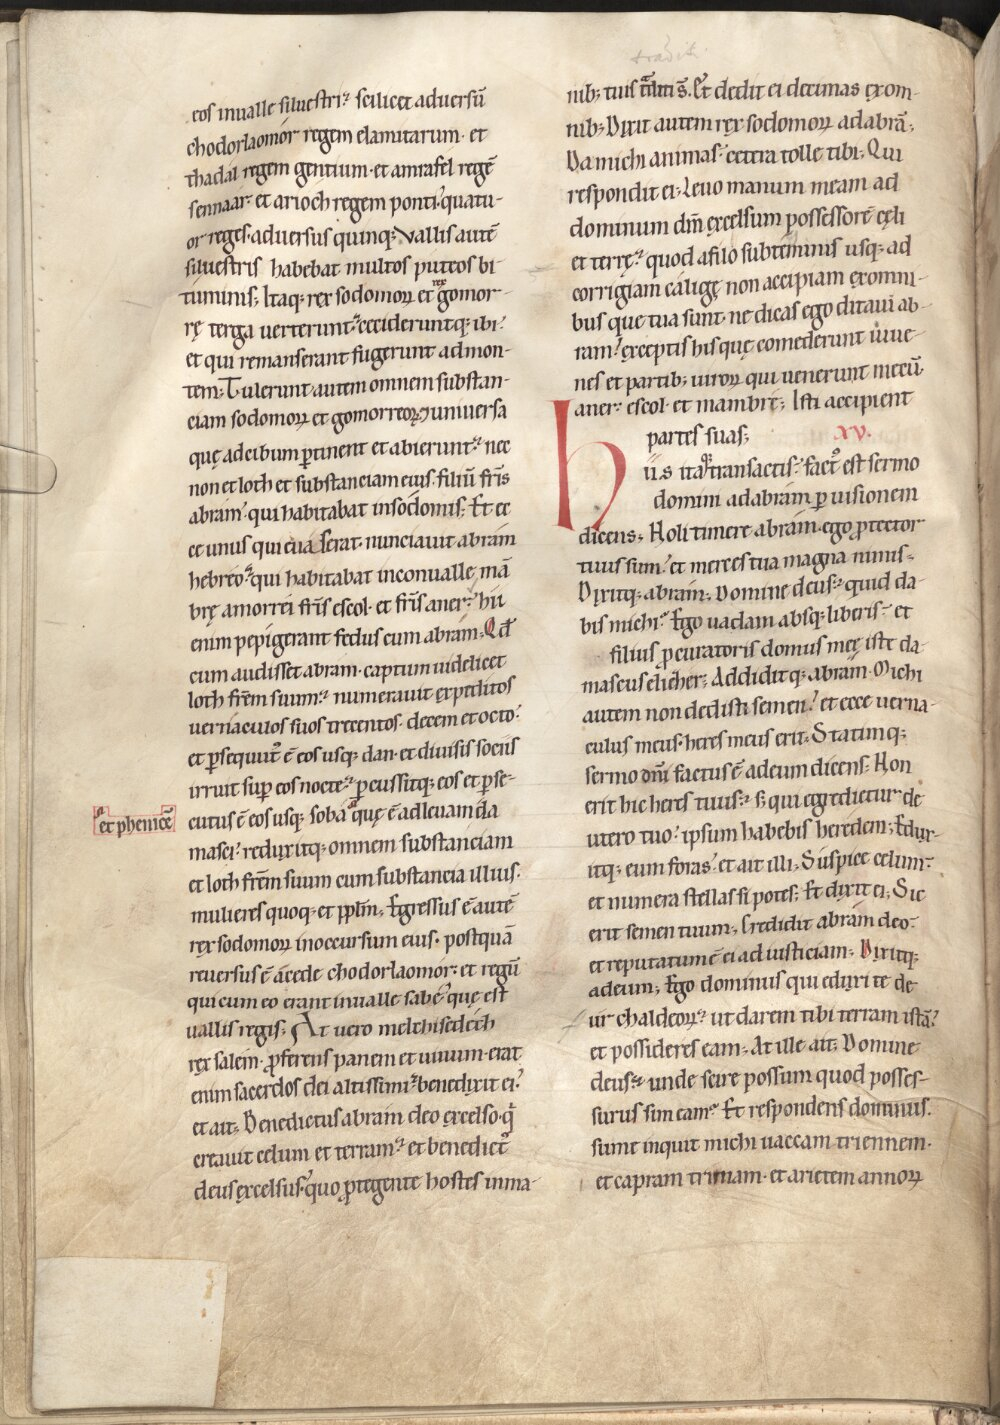 eos in ualle siluestri: scilicet aduersū
chodorlaomór regem elamitarum· et
thadál regem gentium· et amrafel regē
sennaár: et arioch regem ponti: quatu-
or reges· aduersus quinq; Vallis autē
siluestris habebat multos puteos bi-
tuminis; Itaq; rex sodomoꝝ et rex gomor-
rę terga uerterunt: cecideruntq; ibi:
et qui remanserant fugerunt ad mon-
tem; Tulerunt autem omnem substan-
ciam sodomoꝝ et gomorreoꝝ ⁊ uniuersa
quę ad cibum ꝑtinent et abierunt: nec
non et loth et substanciam eius· filiū fr̄is
abram· qui habitabat in sodomis; Et ec
ce unus qui euaserat· nunciauit abrám
hebreo: qui habitabat in conualle mā
brę amorrei fr̄is escol· et fr̄is aner: hii
enim pepigerant fedus cum abrám; Qđ
cum audisset abram· captum uidelicet
loth fr̄em suum: numerauit expeditos
uernaculos suos trecentos· decem et octo:
et ꝑsequut᷒ ē eos usq; dan· et diuisis sociis
irruit suꝑ eos nocte: ꝑcussitq; eos et ꝑse-
cutus ē eos usq; sobá quę ē ad leuam da
et phenicē
masci: reduxitq; omnem substanciam
et loth fr̄em suum cum substancia illius·
mulieres quoq; et pplm̄; Egressus ē autē
rex sodomoꝝ in occursum eius· postquā
reuersus ē a cede chodorlaomór: et regū
qui cum eo erant in ualle sabe: quę est
uallis regis; At uero melchisedech
rex salem· ꝓferens panem et uinum· erat
enim sacerdos dei altissimi: benedixit ei:
et ait; Benedictus abrám deo excelso· q̄
creauit celum et terram: et benedict᷒
deus excelsus: quo ꝓtegente hostes in ma-
nib; tuis s̄. Et dedit ei decimas ex om-
nib; Dixit autem rex sodomoꝝ ad abrā;
Da michi animas: cetera tolle tibi; Qui
respondit ei; Leuo manum meam ad
dominum dm̄ excelsum possessorē cęli
et terrę: quod a filo subteminis usq; ad
corrigiam caligę non accipiam ex omni-
bus que tua sunt· ne dicas ego ditaui ab-
ram: exceptis his quę comederunt iuue-
nes et partib; uiroꝝ qui uenerunt mecū·
aner: escol· et mambre; Isti accipient
partes suas; xv.
Hiis itaq; transactis: fact᷒ est sermo
domini ad abrám ꝑ uisionem
dicens; Noli timere abrám· ego ꝓtector
tuus sum: et merces tua magna nimis;
Dixitq; abrám; Domine deus: quid da-
bis michi: Ego uadam absq; liberis: et
filius ꝓcuratoris domus meę iste da-
mascus eliecher; Addiditq; abrám· Michi
autem non dedisti semen: et ecce uerna-
culus meus· heres meus erit· Statimq;
sermo dn̄i factus ē ad eum dicens; Non
erit hic heres tuus: s; qui egredietur de
utero tuo: ipsum habebis heredem; Edux-
itq; eum foras: et ait illi; Suspice celum:
et numera stellas si potes; Et dixit ei; Sic
erit semen tuum; Credidit abrám deo:
et reputatum ē ei ad iusticiam; Dixitq;
ad eum; Ego dominus qui eduxi te de
ur chaldeoꝝ: ut darem tibi terram istā:
et possideres eam; At ille ait; Domine
deus: unde scire possum quod posses-
surus sim eam: Et respondens dominus.
sume inquit michi uaccam triennem·
et capram trimam· et arietem annoꝝ